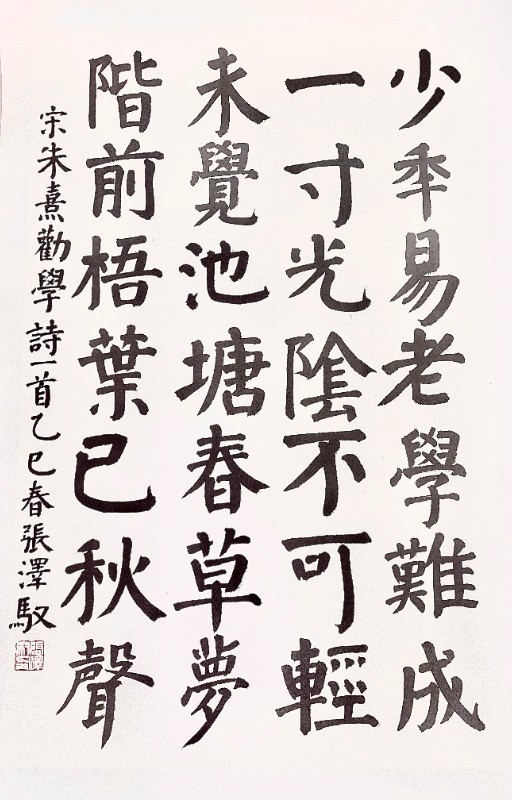 少年易老學難成
一寸光陰不可輕
未覺池塘春草夢
階前梧葉已秋聲
宋朱熹勸學詩一首乙巳春張澤馭